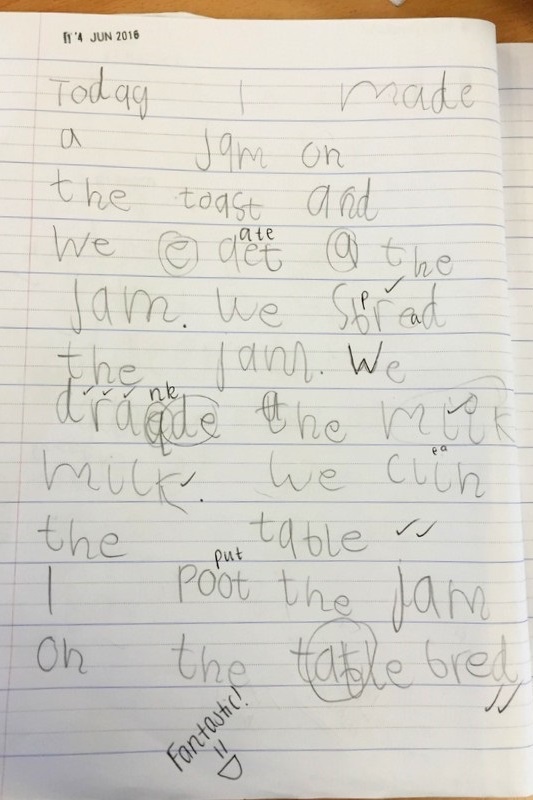 14 JUN 2016
Today I made
a Jam on
the toast and
ate
We e aet a the
Jam. We Spread
the Jam. We
nk
the
milk. We
ea
the table
put
I Poot the Jam
on the table bred
Fantastic!